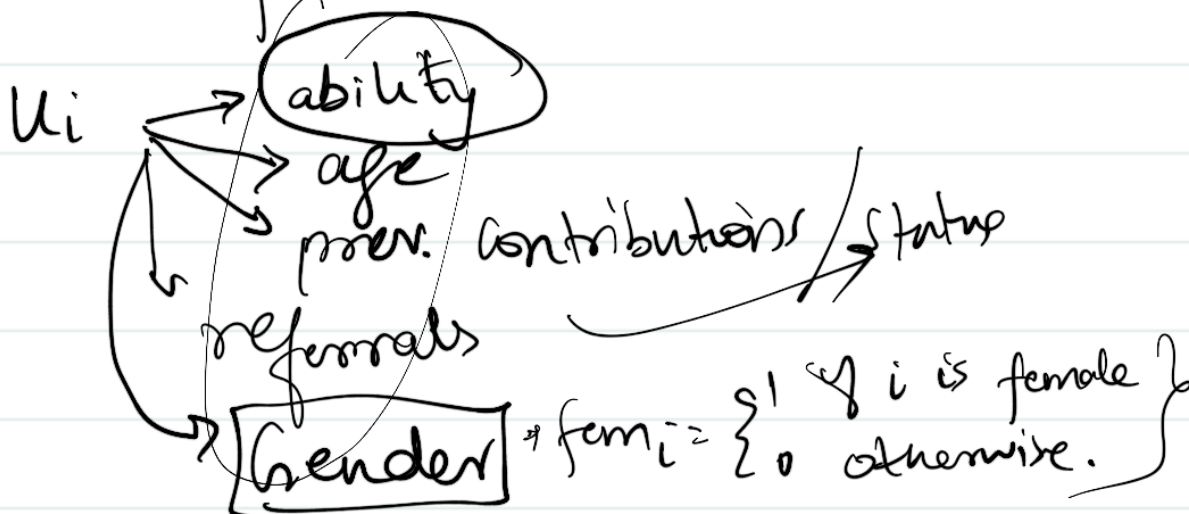 ability
Ui
age
prev. contributions / Status
referrals
Gender * fem i = { 1 if i is female }
0 otherwise.